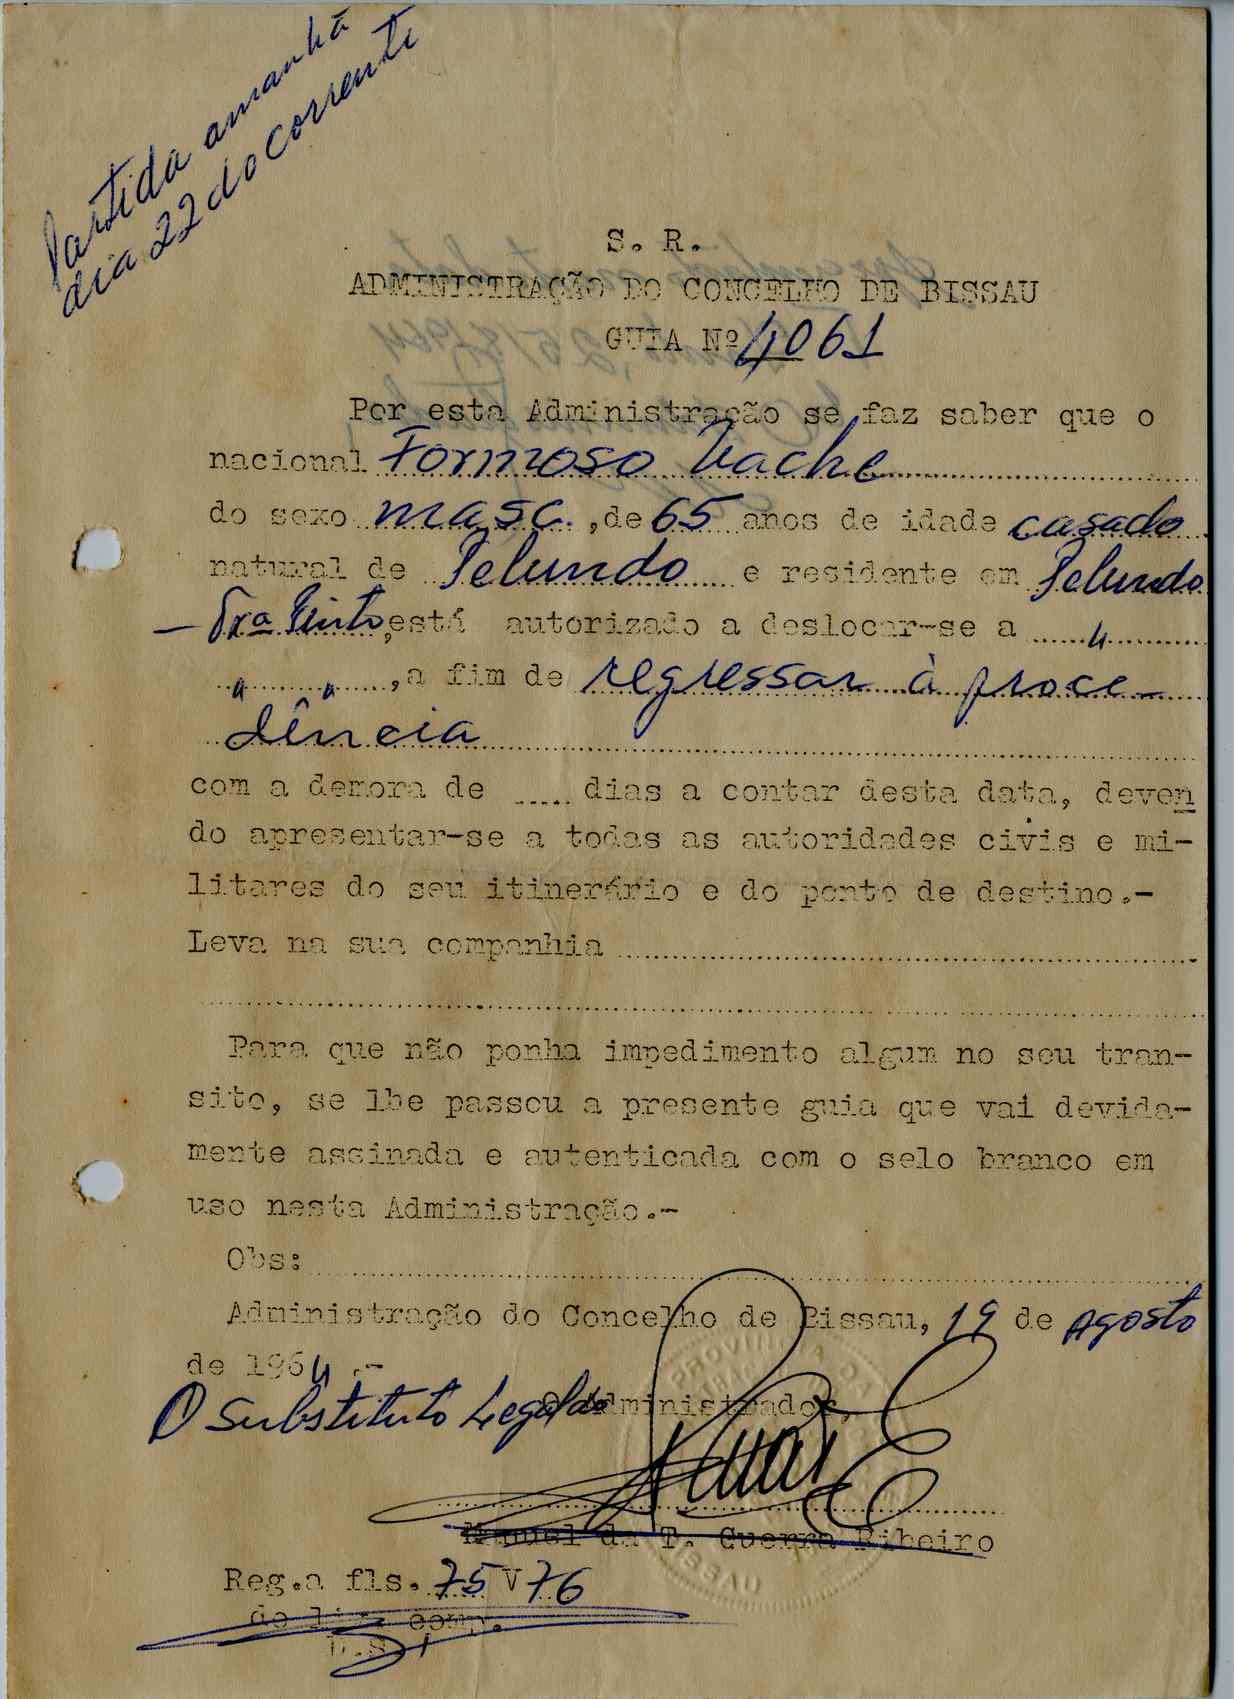 Partida amanhã
dia 22 do corrente
S. R.
ADMINISTRAÇÃO DO CONCELHO DE BISSAU
GUIA Nº 4061
Por esta Administração se faz saber que o
nacional Formoso Vache
do sexo masc. ,de 65 anos de idade casado
natural de Pelundo e residente em Pelundo
— Trª Pinto, está autorizado a deslocar-se a "
" " ,a fim de regressar à proce
dência
com a demora de ..... dias a contar desta data, deven
do apresentar-se a todas as autoridades civis e mi-
litares do seu itinerário e do ponto de destino.-
Leva na sua companhia
Para que não ponha impedimento algum no seu tran-
sito, se lhe passou a presente guia que vai devida-
mente assinada e autenticada com o selo branco em
uso nesta Administração.-
Obs:
Administração do Concelho de Bissau, 19 de Agosto
de 1964 .-
O Substituto Legal do Administrador,
Manuel da T. Guerra Ribeiro
Reg.a fls. 75 V 76
do liv. comp.
PROVINCIA DA
BISSAU